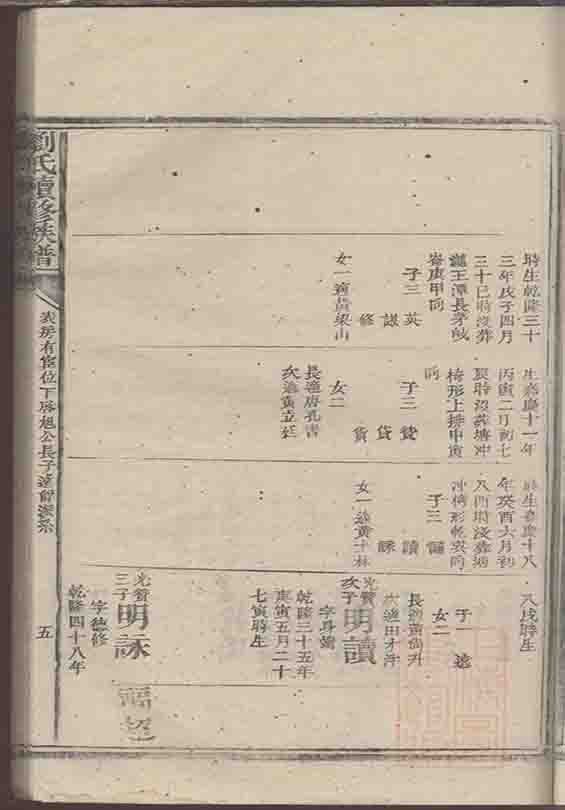 時生乾隆三十
三年戊子四月
三十巳時沒葬
王潭長茅
庚甲向
子三 英
謀
修
女一適黃梁山
生嘉慶十一年
丙寅二月初七
辰時沒葬塘冲
椅形上排申寅
向
子三
貸
貨
女二
長適唐孔書
次適黃立廷
時生嘉慶十八
年癸酉六月初
八酉時沒葬塘
冲椅形乾亥向
子三 誦
讀
詠
女一適黃士林
八戌時生
子一 遠
女二
長適黃尚升
次適田才
光贊次子 明讀
字身
乾隆三十五年
庚寅五月二十
七寅時生
光贊三子 明詠
字德修
乾隆四十八年
劉氏續修族譜
長子達
五